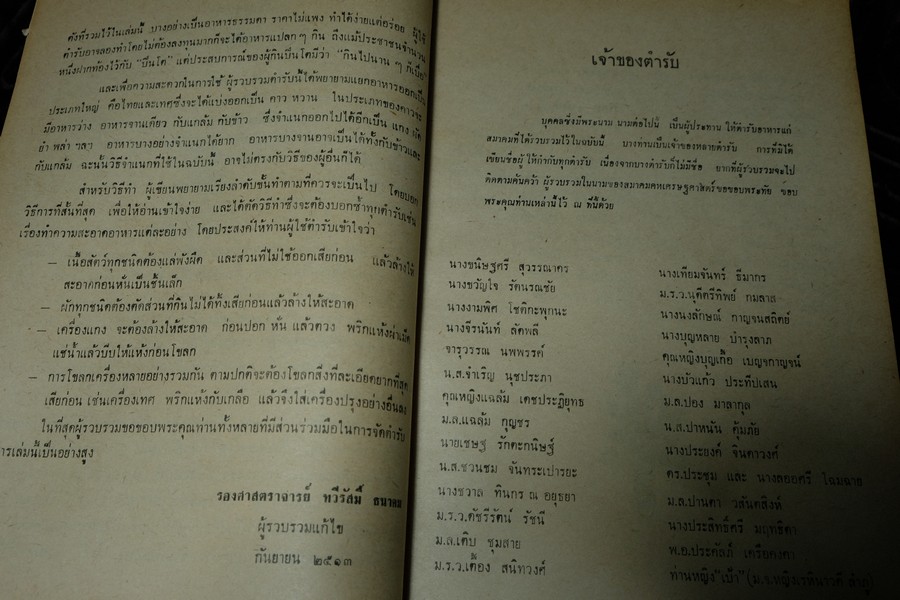 ดังที่รวมไว้ในเล่มนี้ บางอย่างเป็นอาหารธรรมดา ราคาไม่แพง ทำได้ง่ายแต่อร่อย ผู้ใช้
ตำรับอาจลองทำโดยไม่ต้องลงทุนมากก็จะได้อาหารแปลก ๆ กิน ถึงแม้ประชาชนจำนวน
หนึ่งฝากท้องไว้กับ "ปิ่นโต" แต่ประสบการณ์ของผู้กินปิ่นโตมีว่า "กินไปนาน ๆ ก็เบื่อ"
และเพื่อความสะดวกในการใช้ ผู้รวบรวมตำรับนี้ได้พยายามแยกอาหารออกเป็น
ประเภทใหญ่ คือไทยและเทศซึ่งจะได้แบ่งออกเป็น คาว หวาน ในประเภทของคาวจะ
มีอาหารว่าง อาหารจานเดียว กับแกล้ม กับข้าว ซึ่งจำแนกออกไปได้อีกเป็น แกง ผัด
ยำ พล่า ฯลฯ อาหารบางอย่างจำแนกได้ยาก อาหารบางจานอาจเป็นได้ทั้งกับข้าวและ
กับแกล้ม ฉะนั้นวิธีจำแนกที่ใช้ในฉบับนี้ อาจไม่ตรงกับวิธีของผู้อื่นก็ได้
สำหรับวิธีทำ ผู้เขียนพยายามเรียงลำดับขั้นทำตามที่ควรจะเป็นไป โดยบอก
วิธีการที่สั้นที่สุด เพื่อให้อ่านเข้าใจง่าย และได้ตัดวิธีทำซึ่งจะต้องบอกซ้ำทุกตำรับเช่น
เรื่องทำความสะอาดอาหารแต่ละอย่าง โดยประสงค์ให้ท่านผู้ใช้ตำรับเข้าใจว่า
– เนื้อสัตว์ทุกชนิดต้องแล่พังผืด และส่วนที่ไม่ใช้ออกเสียก่อน แล้วล้างให้
สะอาดก่อนหั่นเป็นชิ้นเล็ก
– ผักทุกชนิดต้องคัดส่วนที่กินไม่ได้ทิ้งเสียก่อนแล้วล้างให้สะอาด
– เครื่องแกง จะต้องล้างให้สะอาด ก่อนปอก หั่น แล้วตวง พริกแห้งผ่าเม็ด
แช่น้ำแล้วบีบให้แห้งก่อนโขลก
– การโขลกเครื่องหลายอย่างรวมกัน ตามปกติจะต้องโขลกสิ่งที่ละเอียดยากที่สุด
เสียก่อน เช่นเครื่องเทศ พริกแห้งกับเกลือ แล้วจึงใส่เครื่องปรุงอย่างอื่นลง
ในที่สุดผู้รวบรวมขอขอบพระคุณท่านทั้งหลายที่มีส่วนร่วมมือในการจัดตำรับ
การเล่มนี้เป็นอย่างสูง
รองศาสตราจารย์ ทวีรัสมิ์ ธนาคม
ผู้รวบรวมแก้ไข
กันยายน ๒๕๑๓
เจ้าของตำรับ
บุคคลซึ่งมีพระนาม นามต่อไปนี้ เป็นผู้ประทาน ให้ตำรับอาหารแก่
สมาคมที่ได้รวบรวมไว้ในฉบับนี้ บางท่านเป็นเจ้าของหลายตำรับ การที่มิได้
เขียนชื่อผู้ ให้กำกับทุกตำรับ เนื่องจากบางตำรับก็ไม่มีชื่อ ยากที่ผู้รวบรวมจะไป
ติดตามค้นคว้า ผู้รวบรวมในนามของสมาคมคหเศรษฐศาสตร์ ขอขอบพระทัย ขอบ
พระคุณท่านเหล่านี้ไว้ ณ ที่นี้ด้วย
นางขนิษฐศรี สุวรรณาคร
นางขวัญใจ รัตนรณชัย
นางงามพิศ โชติกะพุกนะ
นางจีรนันท์ ลัดพลี
จารุวรรณ นพพรรค์
น.ส.จำเริญ นุชประภา
คุณหญิงแฉล้ม เดชประฏิยุทธ
ม.ล.แฉล้ม กุญชร
นายเชษฐ รักตะกนิษฐ์
น.ส.ชวนชม จันทระเปารยะ
นางชวาล ทินกร ณ อยุธยา
ม.ร.ว.ดัชรีรัตน์ รัชนี
ม.ล.เติบ ชุมสาย
ม.ร.ว.เตื้อง สนิทวงศ์
นางเทียมจันทร์ ธีมากร
ม.ร.ว.นุคีศรีทิพย์ กมลาส
นางนงลักษณ์ กาญจนสถิตย์
นางบุญหลาย บำรุงลาภ
คุณหญิงบุญเกื้อ เบญจกาญจน์
นางบัวแก้ว ประทีปเสน
ม.ล.ปอง มาลากุล
น.ส.ปาหนัน คุ้มภัย
นางประยงค์ จินดาวงศ์
ดร.ประชุม และ นางลออศรี โฉมฉาย
ม.ล.ปานตา วสันตสิงห์
นางประสิทธิ์ศรี มฤทธิตา
พ.อ.ประคัลภ์ เครือคงคา
ท่านหญิง "เป้า"